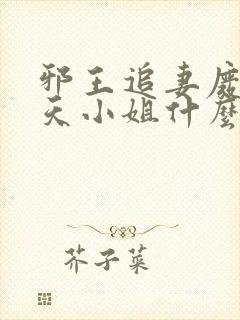 邪王追妻廢
天小姐什麼
芥子菜